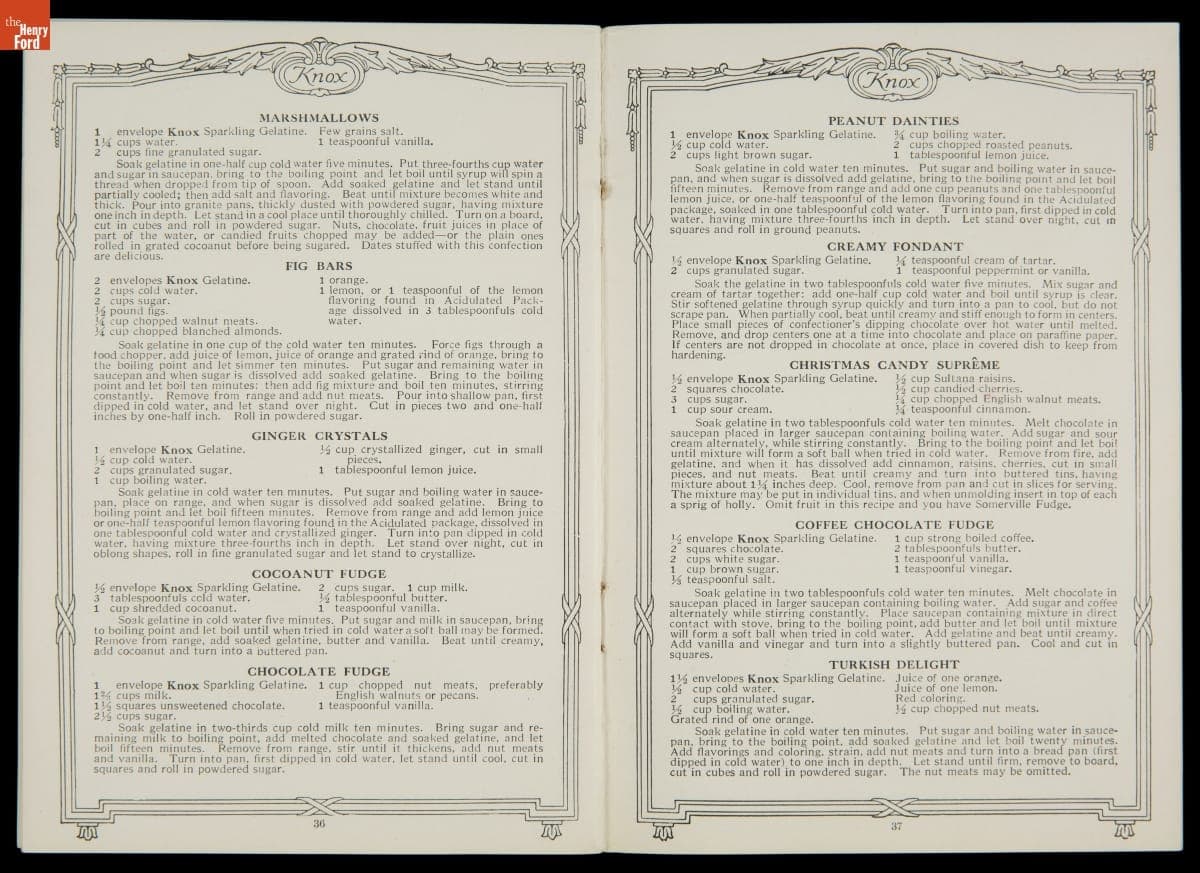 the
Henry
Ford
Knox
MARSHMALLOWS
1 envelope Knox Sparkling Gelatine. Few grains salt.
1¼ cups water. 1 teaspoonful vanilla.
2 cups fine granulated sugar.
Soak gelatine in one-half cup cold water five minutes. Put three-fourths cup water
and sugar in saucepan, bring to the boiling point and let boil until syrup will spin a
thread when dropped from tip of spoon. Add soaked gelatine and let stand until
partially cooled; then add salt and flavoring. Beat until mixture becomes white and
thick. Pour into granite pans, thickly dusted with powdered sugar, having mixture
one inch in depth. Let stand in a cool place until thoroughly chilled. Turn on a board,
cut in cubes and roll in powdered sugar. Nuts, chocolate, fruit juices in place of
part of the water, or candied fruits chopped may be added—or the plain ones
rolled in grated cocoanut before being sugared. Dates stuffed with this confection
are delicious.
FIG BARS
2 envelopes Knox Gelatine. 1 orange.
2 cups cold water. 1 lemon, or 1 teaspoonful of the lemon
2 cups sugar. flavoring found in Acidulated Pack-
½ pound figs. age dissolved in 3 tablespoonfuls cold
¼ cup chopped walnut meats. water.
¼ cup chopped blanched almonds.
Soak gelatine in one cup of the cold water ten minutes. Force figs through a
food chopper, add juice of lemon, juice of orange and grated rind of orange, bring to
the boiling point and let simmer ten minutes. Put sugar and remaining water in
saucepan and when sugar is dissolved add soaked gelatine. Bring to the boiling
point and let boil ten minutes; then add fig mixture and boil ten minutes, stirring
constantly. Remove from range and add nut meats. Pour into shallow pan, first
dipped in cold water, and let stand over night. Cut in pieces two and one-half
inches by one-half inch. Roll in powdered sugar.
GINGER CRYSTALS
1 envelope Knox Gelatine. ½ cup crystallized ginger, cut in small
½ cup cold water. pieces.
2 cups granulated sugar. 1 tablespoonful lemon juice.
1 cup boiling water.
Soak gelatine in cold water ten minutes. Put sugar and boiling water in sauce-
pan, place on range, and when sugar is dissolved add soaked gelatine. Bring to
boiling point and let boil fifteen minutes. Remove from range and add lemon juice
or one-half teaspoonful lemon flavoring found in the Acidulated package, dissolved in
one tablespoonful cold water and crystallized ginger. Turn into pan dipped in cold
water, having mixture three-fourths inch in depth. Let stand over night, cut in
oblong shapes, roll in fine granulated sugar and let stand to crystallize.
COCOANUT FUDGE
½ envelope Knox Sparkling Gelatine. 2 cups sugar. 1 cup milk.
3 tablespoonfuls cold water. ½ tablespoonful butter.
1 cup shredded cocoanut. 1 teaspoonful vanilla.
Soak gelatine in cold water five minutes. Put sugar and milk in saucepan, bring
to boiling point and let boil until when tried in cold water a soft ball may be formed.
Remove from range, add soaked gelatine, butter and vanilla. Beat until creamy,
add cocoanut and turn into a buttered pan.
CHOCOLATE FUDGE
1 envelope Knox Sparkling Gelatine. 1 cup chopped nut meats, preferably
1⅔ cups milk. English walnuts or pecans.
1½ squares unsweetened chocolate. 1 teaspoonful vanilla.
2½ cups sugar.
Soak gelatine in two-thirds cup cold milk ten minutes. Bring sugar and re-
maining milk to boiling point, add melted chocolate and soaked gelatine, and let
boil fifteen minutes. Remove from range, stir until it thickens, add nut meats
and vanilla. Turn into pan, first dipped in cold water, let stand until cool, cut in
squares and roll in powdered sugar.
36
Knox
PEANUT DAINTIES
1 envelope Knox Sparkling Gelatine. ¾ cup boiling water.
½ cup cold water. 2 cups chopped roasted peanuts.
2 cups light brown sugar. 1 tablespoonful lemon juice.
Soak gelatine in cold water ten minutes. Put sugar and boiling water in sauce-
pan, and when sugar is dissolved add gelatine, bring to the boiling point and let boil
fifteen minutes. Remove from range and add one cup peanuts and one tablespoonful
lemon juice, or one-half teaspoonful of the lemon flavoring found in the Acidulated
package, soaked in one tablespoonful cold water. Turn into pan, first dipped in cold
water, having mixture three-fourths inch in depth. Let stand over night, cut in
squares and roll in ground peanuts.
CREAMY FONDANT
½ envelope Knox Sparkling Gelatine. ¼ teaspoonful cream of tartar.
2 cups granulated sugar. 1 teaspoonful peppermint or vanilla.
Soak the gelatine in two tablespoonfuls cold water five minutes. Mix sugar and
cream of tartar together; add one-half cup cold water and boil until syrup is clear.
Stir softened gelatine through syrup quickly and turn into a pan to cool, but do not
scrape pan. When partially cool, beat until creamy and stiff enough to form in centers.
Place small pieces of confectioner's dipping chocolate over hot water until melted.
Remove, and drop centers one at a time into chocolate and place on paraffine paper.
If centers are not dropped in chocolate at once, place in covered dish to keep from
hardening.
CHRISTMAS CANDY SUPRÊME
½ envelope Knox Sparkling Gelatine. ½ cup Sultana raisins.
2 squares chocolate. ½ cup candied cherries.
3 cups sugar. ¼ cup chopped English walnut meats.
1 cup sour cream. ¼ teaspoonful cinnamon.
Soak gelatine in two tablespoonfuls cold water ten minutes. Melt chocolate in
saucepan placed in larger saucepan containing boiling water. Add sugar and sour
cream alternately, while stirring constantly. Bring to the boiling point and let boil
until mixture will form a soft ball when tried in cold water. Remove from fire, add
gelatine, and when it has dissolved add cinnamon, raisins, cherries, cut in small
pieces, and nut meats. Beat until creamy and turn into buttered tins, having
mixture about 1¼ inches deep. Cool, remove from pan and cut in slices for serving.
The mixture may be put in individual tins, and when unmolding insert in top of each
a sprig of holly. Omit fruit in this recipe and you have Somerville Fudge.
COFFEE CHOCOLATE FUDGE
½ envelope Knox Sparkling Gelatine. 1 cup strong boiled coffee.
2 squares chocolate. 2 tablespoonfuls butter.
2 cups white sugar. 1 teaspoonful vanilla.
1 cup brown sugar. 1 teaspoonful vinegar.
⅛ teaspoonful salt.
Soak gelatine in two tablespoonfuls cold water ten minutes. Melt chocolate in
saucepan placed in larger saucepan containing boiling water. Add sugar and coffee
alternately while stirring constantly. Place saucepan containing mixture in direct
contact with stove, bring to the boiling point, add butter and let boil until mixture
will form a soft ball when tried in cold water. Add gelatine and beat until creamy.
Add vanilla and vinegar and turn into a slightly buttered pan. Cool and cut in
squares.
TURKISH DELIGHT
1½ envelopes Knox Sparkling Gelatine. Juice of one orange.
½ cup cold water. Juice of one lemon.
2 cups granulated sugar. Red coloring.
½ cup boiling water. ½ cup chopped nut meats.
Grated rind of one orange.
Soak gelatine in cold water ten minutes. Put sugar and boiling water in sauce-
pan, bring to the boiling point, add soaked gelatine and let boil twenty minutes.
Add flavorings and coloring, strain, add nut meats and turn into a bread pan (first
dipped in cold water) to one inch in depth. Let stand until firm, remove to board,
cut in cubes and roll in powdered sugar. The nut meats may be omitted.
37